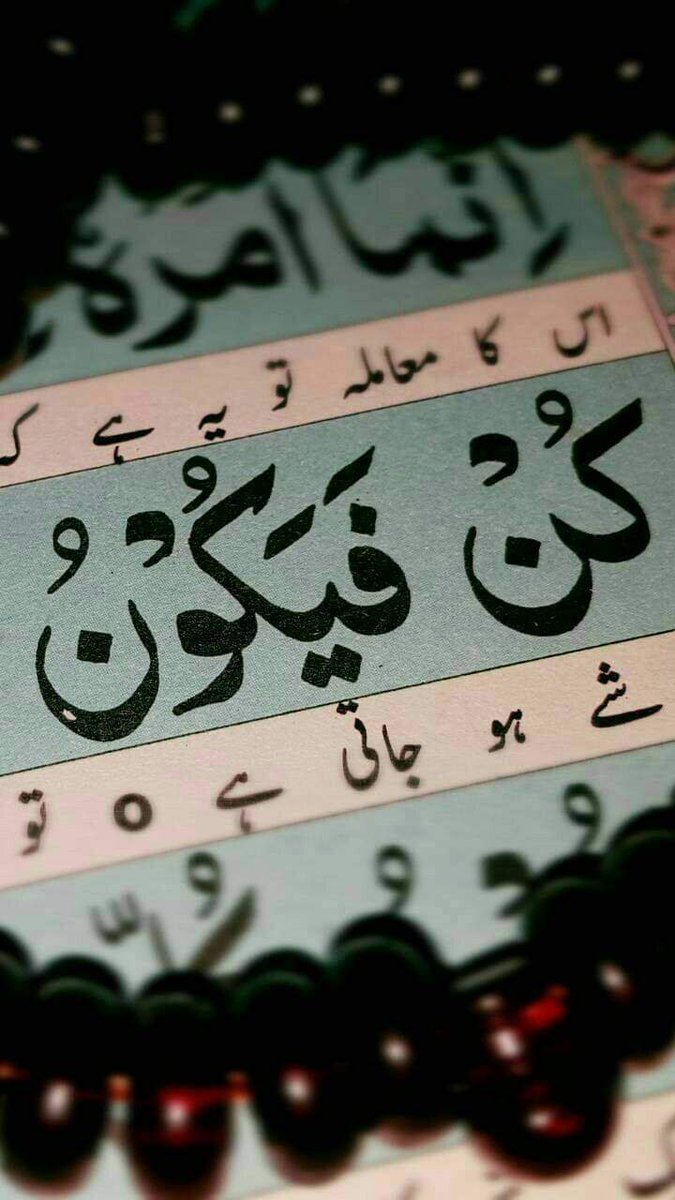 اِنَّمَاۤ اَمْرُهٗۤ
اس کا معاملہ تو یہ ہے کہ
كُنْ فَيَكُوْنُ
شے ہو جاتی ہے o تو